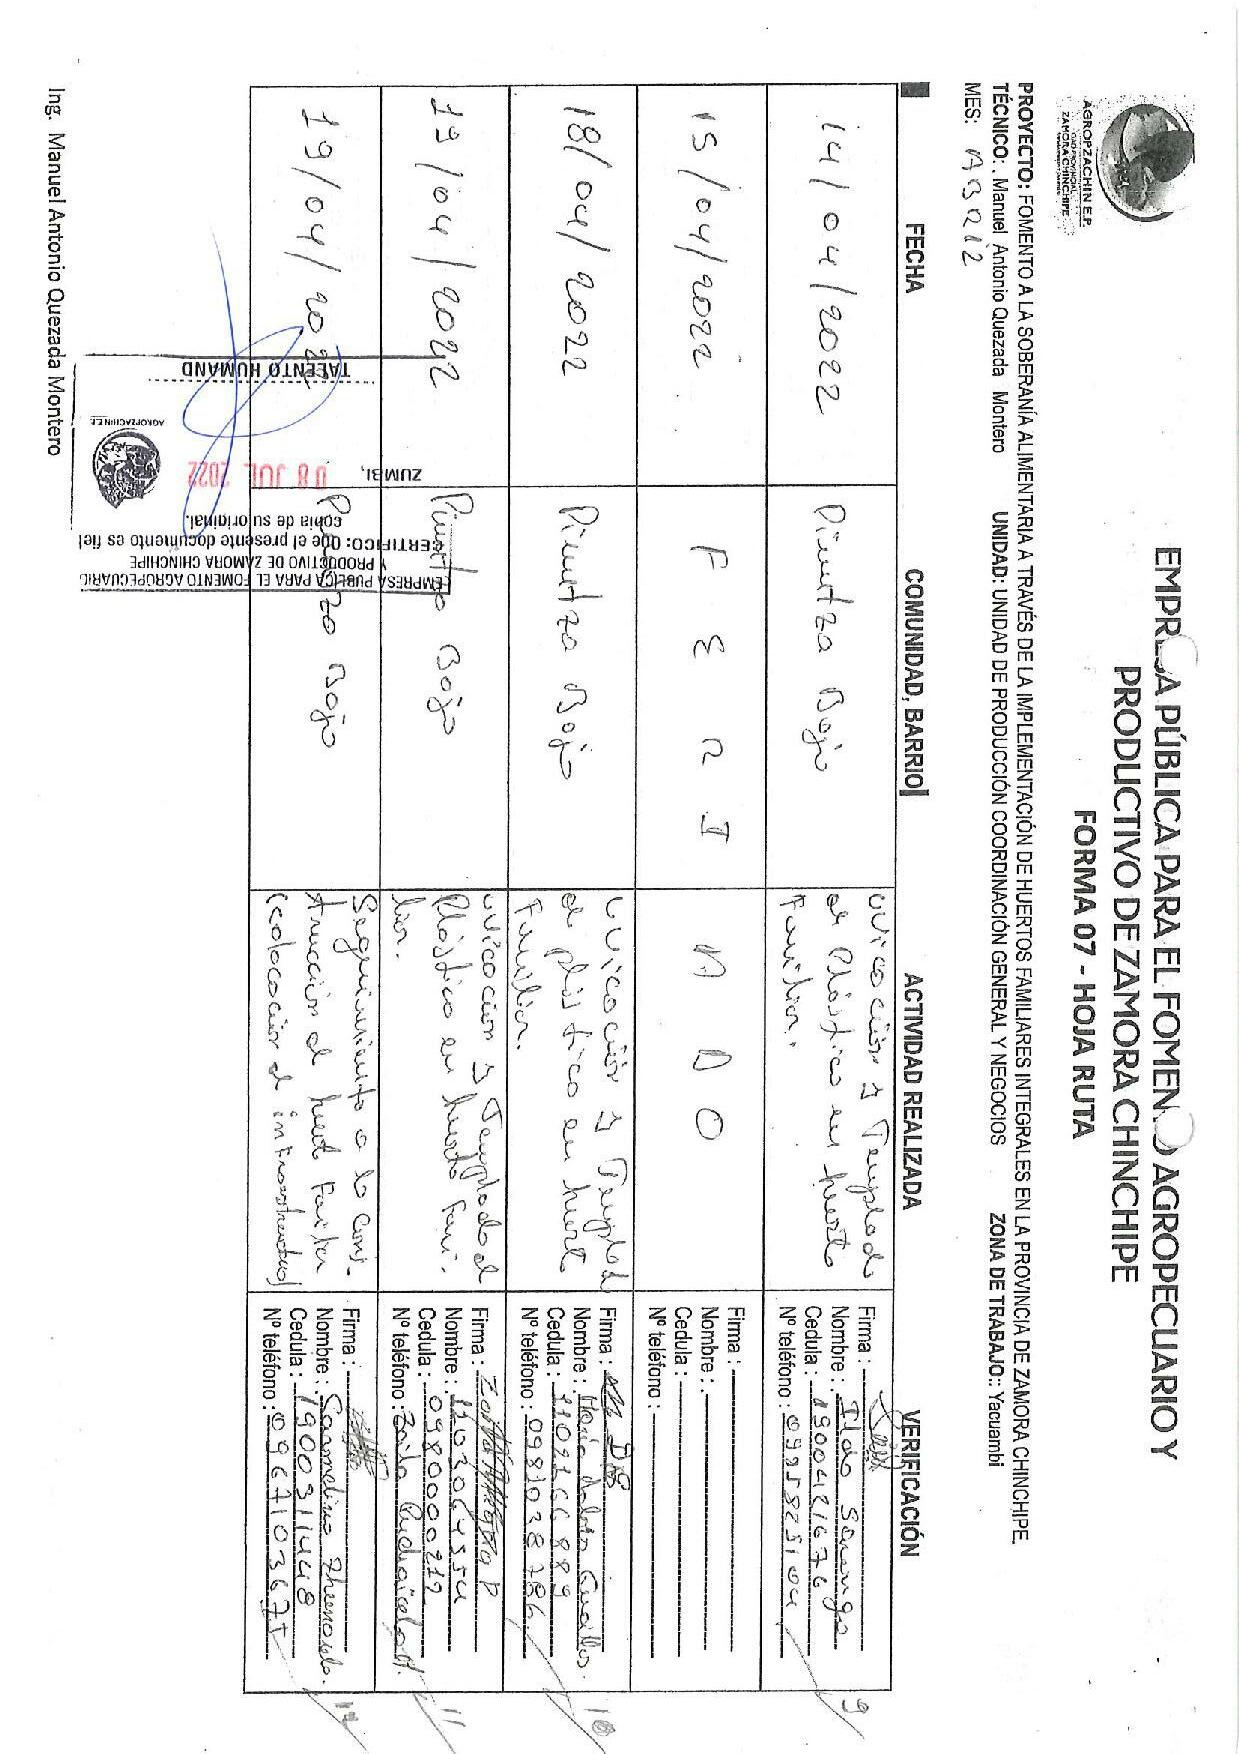 AGROPZACHIN E.P.
GAD PROVINCIAL
ZAMORA CHINCHIPE
EMPRESA PÚBLICA PARA EL FOMENTO AGROPECUARIO Y
PRODUCTIVO DE ZAMORA CHINCHIPE
FORMA 07 - HOJA RUTA
PROYECTO: FOMENTO A LA SOBERANÍA ALIMENTARIA A TRAVÉS DE LA IMPLEMENTACIÓN DE HUERTOS FAMILIARES INTEGRALES EN LA PROVINCIA DE ZAMORA CHINCHIPE
TÉCNICO: . Manuel Antonio Quezada Montero UNIDAD: UNIDAD DE PRODUCCIÓN COORDINACIÓN GENERAL Y NEGOCIOS ZONA DE TRABAJO:: Yacuambi
MES: ABRIL
FECHA COMUNIDAD, BARRIO ACTIVIDAD REALIZADA VERIFICACIÓN
14/04/2022
Piuntza Bajo
uvicación y Templado
de Plástico en huerto
Familiar.
Firma :
Nombre : Ildo
Cedula : 1900421676
Nº teléfono : 0995825104
9
15/04/2022
F E R I A D O
Firma :
Nombre :
Cedula :
Nº teléfono :
18/04/2022
Piuntza Bajo
uvicación y Templad
de plástico en huert
Familiar.
Firma :
Nombre : María
Cedula : 1102166889
Nº teléfono : 0981028786
10
19/04/2022
Bajo
uvicación y Templado de
Plástico en huerto Fami-
liar.
Firma :
Nombre : 1103064554
Cedula : 0980000212
Nº teléfono : Zoila
11
19/04/2022
Bajo
Seguimiento a la Cons-
trucción de huert
(colocación de infraestructura)
Firma :
Nombre :
Cedula : 1900311448
Nº teléfono : 0967103675
12
EMPRESA PUBLICA PARA EL FOMENTO AGROPECUARIO
Y PRODUCTIVO DE ZAMORA CHINCHIPE
CERTIFICO: Que el presente documento es fiel
copia de su original.
ZUMBI, 08 JUL 2022
AGROPZACHIN E.P.
TALENTO HUMANO
Ing. Manuel Antonio Quezada Montero